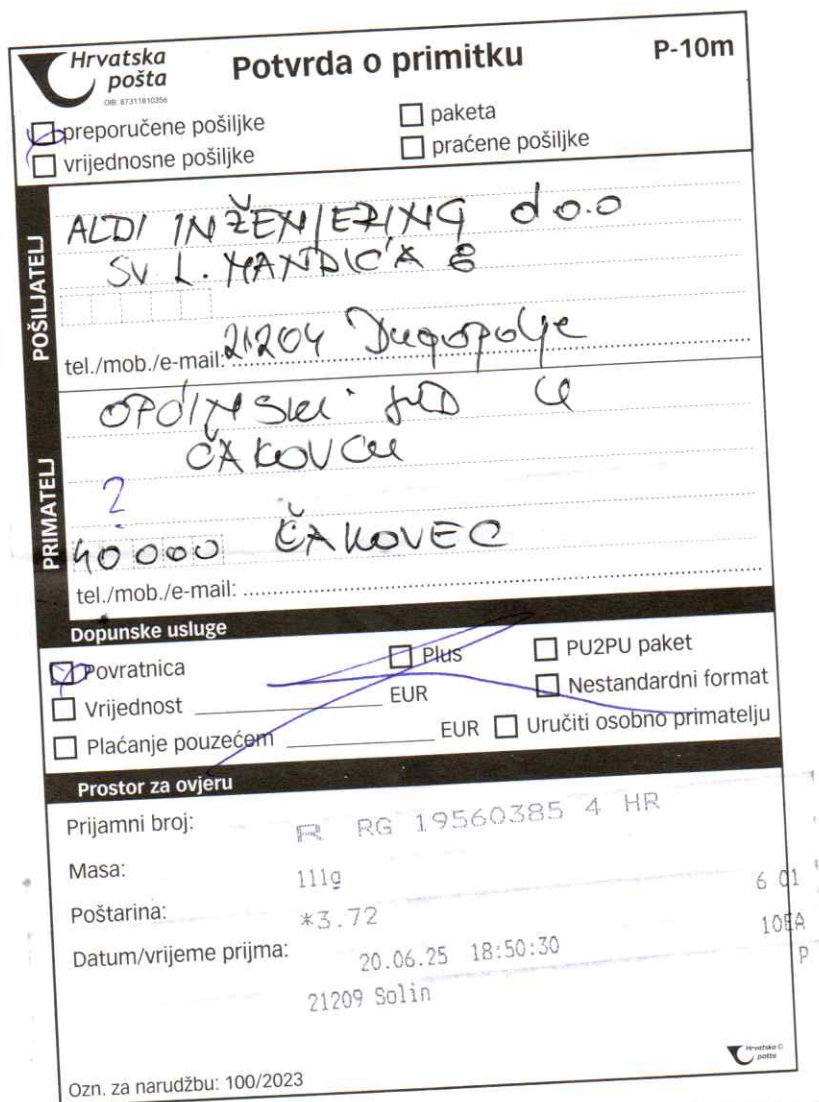 Hrvatska pošta
OIB: 87311810356
Potvrda o primitku
P-10m
preporučene pošiljke
paketa
vrijednosne pošiljke
praćene pošiljke
POŠILJATELJ
ALDI INŽENJERING d.o.o
SV L. MANDIĆA 8
21204 Dugopolje
tel./mob./e-mail:
PRIMATELJ
OPĆINSKI SUD U
ČAKOVCU
?
40000 ČAKOVEC
tel./mob./e-mail:
Dopunske usluge
Povratnica
Plus
PU2PU paket
Vrijednost EUR
Nestandardni format
Plaćanje pouzećem EUR
Uručiti osobno primatelju
Prostor za ovjeru
Prijamni broj: R RG 19560385 4 HR
Masa: 111g
6 01
Poštarina: *3.72
10EA
Datum/vrijeme prijma: 20.06.25 18:50:30
P
21209 Solin
Hrvatska pošta
Ozn. za narudžbu: 100/2023